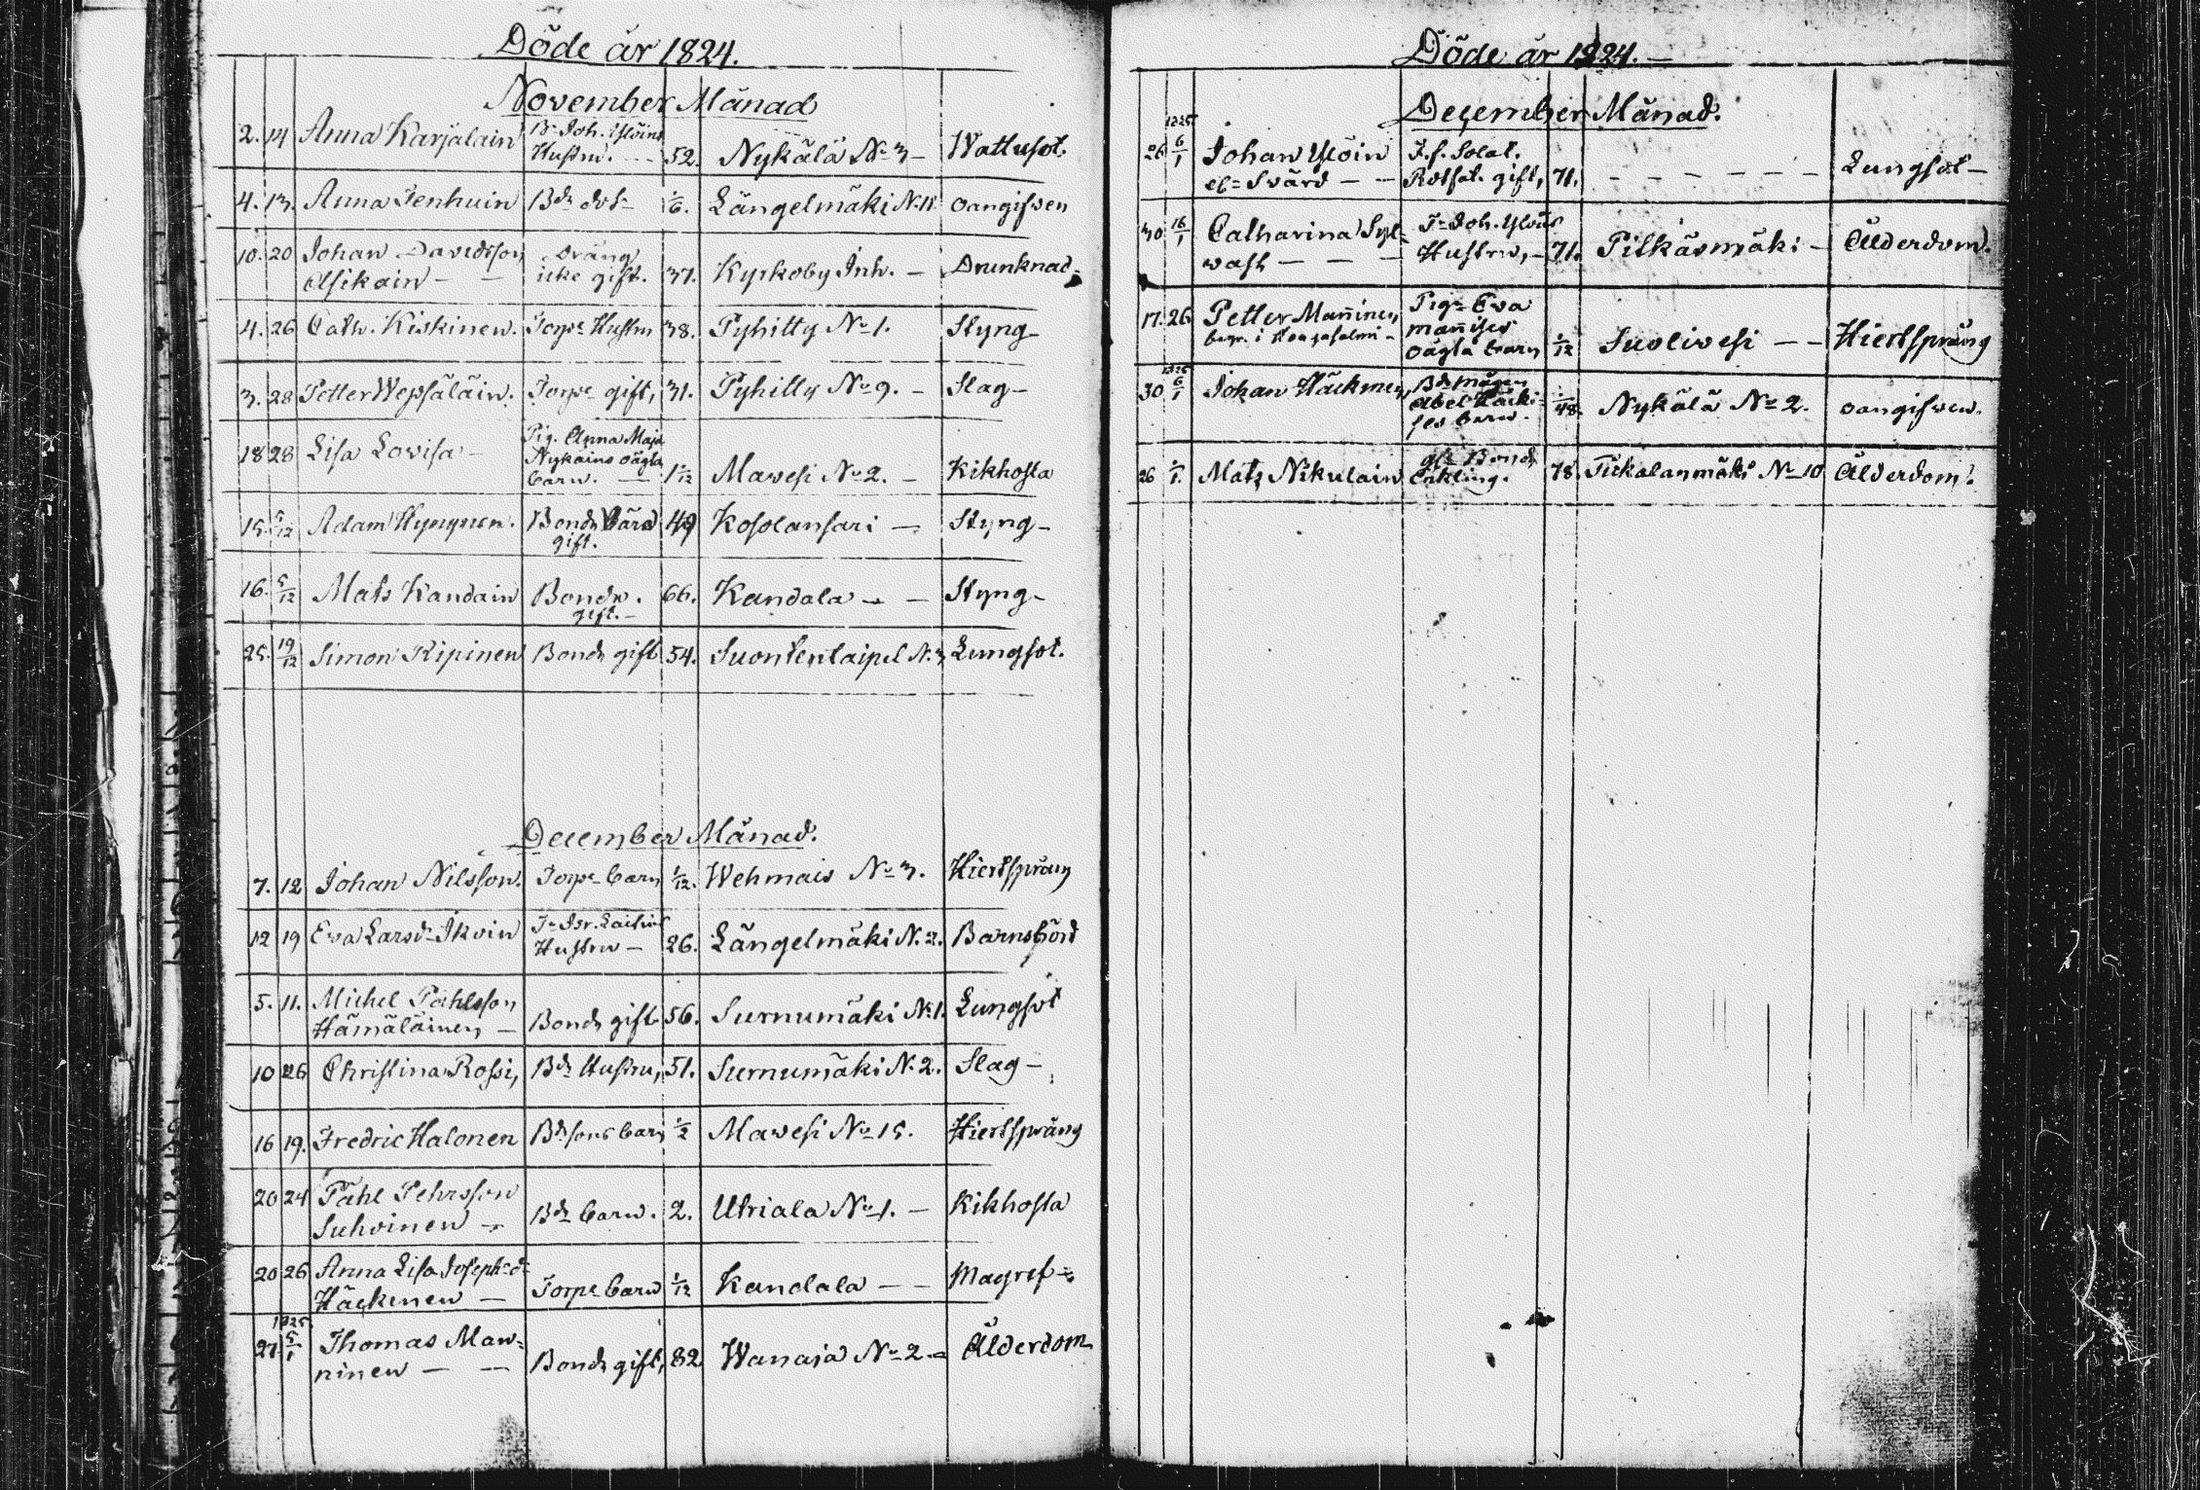 Döde år 1824.
November Månad
2. 14 Anna Karjalain Bd Joh. Ylöins
Hustru. 52. Nykälä No 3 Wattusot.
4. 13. Anna Tenhuin Bd dot 1/6. Längelmäki N. 11 oangifwen
10. 20 Johan Davidsson Dräng
Asikain icke gift. 37. Kyrkoby Inh. Drunknad
4. 26 Cath. Kiskinen. Torp Hustru 38. Pyhitty No 1. Styng
3. 28 Petter Wepsäläin. Torp gift, 31. Pyhitty No 9. Slag
18 28 Lisa Lovisa Pig. Anna Maja
Nykäins oägta
barn. 1/12 Mavesi No 2. Kikhosta
15. 5/12 Adam Hynynen. Bonde 49 Kosolansari Styng
gift.
16. 5/12 Mats Kandain Bonde. 66. Kandala Styng
gift.
25. 19/12 Simon Ripinen Bonde gift 54. Suontentaipel N. 3 Lungsot.
December Månad.
7. 12 Johan Nilsson. Torp barn 1/12. Wehmais No 3. Hiertsprång
12 19 Eva Larsd Ikoin Hustru 26. Längelmäki N. 2. Barnsbörd
5. 11. Michel Påhlsson
Hämäläinen Bonde gift 56. Surnumäki N. 1. Lungsot
10 26 Christina Rossi, Bd Hustru, 51. Surnumäki N. 2. Slag
16 19. Fredric Halonen Bd sons barn 1/2 Mavesi No 15. Hiertsprång
20 24 Påhl Pehrsson
Suhoinen Bd barn. 2. Utriala No 1. Kikhosta
20 26 Anna Lisa Josephsd
Häckinen Torp barn 1/12 Kandala Magref
1825
27 5/1 Thomas Man-
ninen Bonde gift, 82 Wanaja No 2 Ålderdom
Döde år 1824.
December Månad.
1825
26 6/1 Johan Ylöin F.f. Solat.
el. Svärd Rotfat. gift, 71. Lungsot
30 16/1 Catharina Syl- Joh. Ylöins
wast Hustru, 71. Pitkäsmäki Ålderdom.
17. 26 Petter Manninen Pig Eva
begr. i Kangasalmi Mannises
oägta barn 1/12 Suolivesi Hiertsprång
1825
30 6/1 Johan Häckinen, Bd mågen
Abel Häcki-
ses barn. 1/48. Nykälä No 2. oangifven.
26 2/1. Mats Nikulain gl. Bonde
Enkling. 78. Tickalanmäki No 10 Ålderdom.